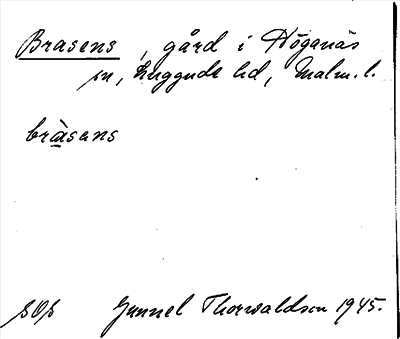 Brasens, gård i Höganäs
sn, Luggude hd, Malm. l.
bràsans
SOS Gunnel Thorvaldson 1945.